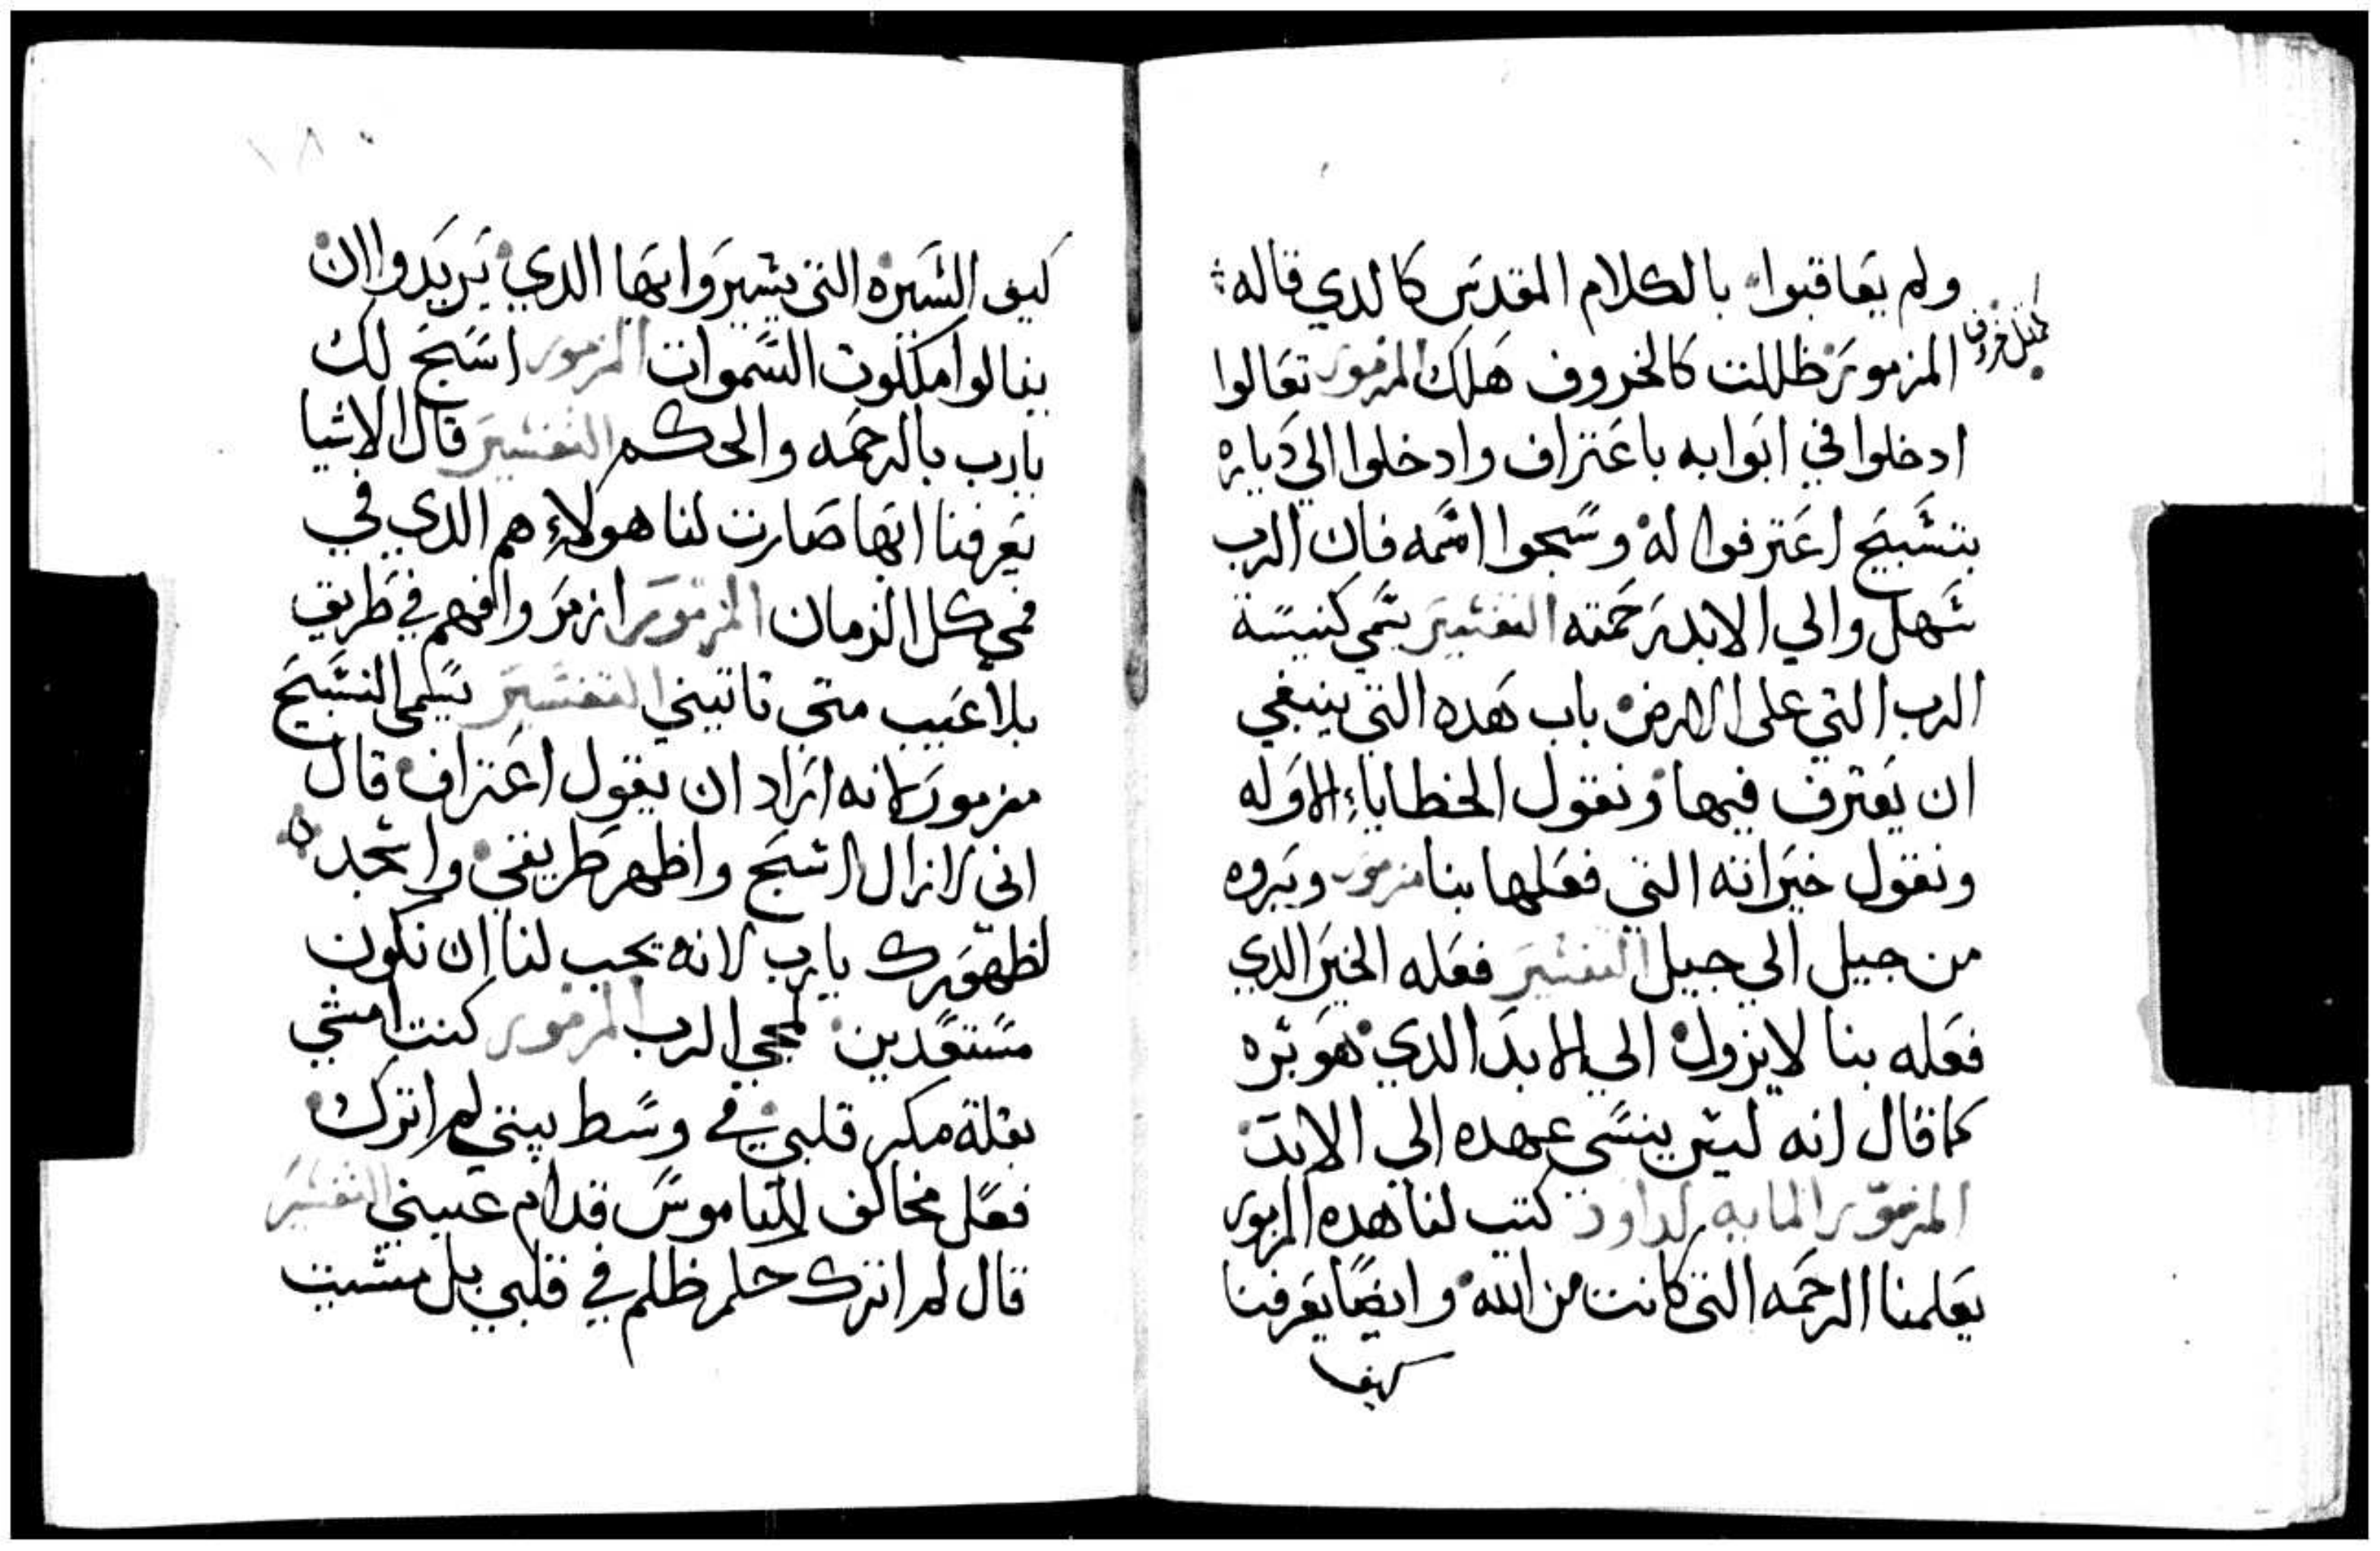 ولم يعاقبوا بالكلام المقدس كالدي قاله
مثل خروف
المزمور ظللت كالخروف هلك المزمور تعالوا
ادخلوا في ابوابه باعتراف وادخلوا الي دياره
بتسبيح اعترفوا له وسبحوا اسمه فان الرب
سهل والي الابد رحمته التفسير يسمي كنيسة
الرب التي علي الارض باب هده التي ينبغي
ان يعترف فيها ونقول الخطاياء الاوله
ونقول خيراته التي فعلها بنا مزمور وبره
من جيل الي جيل التفسير فعله الخير الدي
فعله بنا لا يزول الي الابد الدي هو بره
كما قال انه ليس ينسي عهده الي الابد
المزمور المايه لداود كتب لنا هده المزمور
يعلمنا الرحمه التي كانت من الله وايضا يعرفنا
كيف
١٨٠
كيف السيره التي يسيروا بها الدي يريدوا ان
ينالوا ملكوت السموات المزمور اسبح لك
يارب بالرحمه والحكم التفسير قال الاشيا
يعرفنا انها صارت لنا هولاء هم الدي في
في كل الزمان المزمور ازمر وافهم في طريق
بلا عيب متي تاتيني التفسير يسمي التسبيح
مزمور لانه اراد ان يقول اعتراف قال
اني لا ازال اسبح واظهر طريقي واسجد
لظهورك يارب لانه يجب لنا ان نكون
مستعدين لمجي الرب المزمور كنت امشي
بقلة مكر قلبي في وسط بيتي لم اترك
فعل مخالف للناموس قدام عيني التفسير
قال لم اترك حلم ظلم في قلبي بل مشيت